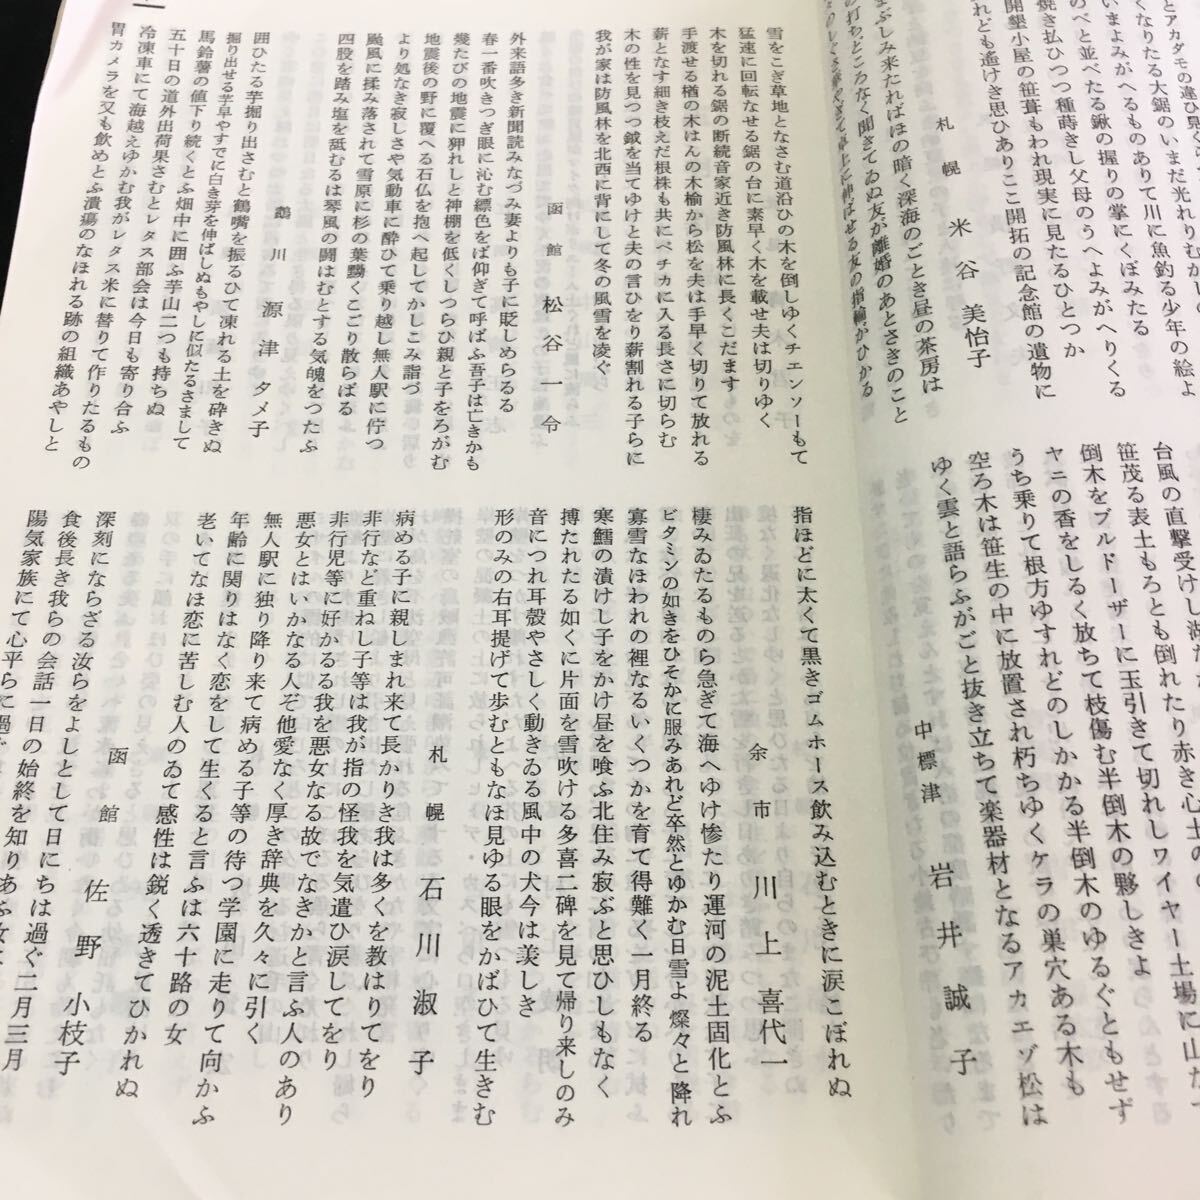 とアカダモの違ひ見
くなりたる大鋸のいまだ光れりむかし
いまよみがへるものありて川に魚釣る少年の絵よ
のべと並べたる鍬の握りの掌にくぼみたる
焼き払ひつつ種蒔きし父母のうへよみがへりくる
開墾小屋の笹葺もわれ現実に見たるひとつか
れども遙けき思ひありここ開拓の記念館の遺物に
札幌 米谷美怡子
まぶしみ来たればほの暗く深海のごとき昼の茶房は
の打ちどころなく聞きてゐぬ友が離婚のあとさきのこと
雪をこぎ草地となさむ道沿ひの木を倒しゆくチエンソーもて
猛速に回転なせる鋸の台に素早く木を載せ夫は切りゆく
木を切れる鋸の断続音家近き防風林に長くこだます
手渡せる楢の木はんの木楡から松を夫は手早く切りて放れる
薪となす細き枝えだ根株も共にペチカに入る長さに切らむ
木の性を見つつ鉞を当てゆけと夫の言ひをり薪割れる子らに
我が家は防風林を北西に背にして冬の風雪を凌ぐ
函館 松谷一令
外来語多き新聞読みなづみ妻よりも子に貶しめらるる
春一番吹きつぎ眼に沁む縹色をば仰ぎて呼ばふ吾子は亡きかも
幾たびの地震に狎れしと神棚を低くしつらひ親と子をろがむ
地震後の野に覆へる石仏を抱へ起してかしこみ詣づ
より処なき寂しさや気動車に酔ひて乗り越し無人駅に佇つ
颱風に揉み落されて雪原に杉の葉黝くこごり散らばる
四股を踏み塩を舐むるは琴風の闘はむとする気魄をつたふ
鵡川 源津タメ子
囲ひたる芋掘り出さむと鶴嘴を振るひて凍れる土を砕きぬ
掘り出せる芋早やすでに白き芽を伸ばしぬもやしに似たるさまして
馬鈴薯の値下り続くとふ畑中に囲ふ芋山二つも持ちぬ
五十日の道外出荷果さむとレタス部会は今日も寄り合ふ
冷凍車にて海越えゆかむ我がレタス米に替りて作りたるもの
胃カメラを又も飲めとふ潰瘍のなほれる跡の組織あやしと
台風の直撃受けし
笹茂る表土もろとも倒れたり赤き心土の
倒木をブルドーザーに玉引きて切れしワイヤー土場に山
ヤニの香をしるく放ちて枝傷む半倒木の夥しきよ
うち乗りて根方ゆすれどのしかかる半倒木のゆるぐともせず
空ろ木は笹生の中に放置され朽ちゆくケラの巣穴ある木も
ゆく雲と語らふがごと抜き立ちて楽器材となるアカエゾ松は
中標津 岩井誠子
指ほどに太くて黒きゴムホース飲み込むときに涙こぼれぬ
余市 川上喜代一
棲みゐたるものら急ぎて海へゆけ惨たり運河の泥土固化とふ
ビタミンの如きをひそかに服みあれど卒然とゆかむ日雪よ燦々と降れ
寡雪なほわれの裡なるいくつかを育て得難く一月終る
寒鱈の漬けし子をかけ昼を喰ふ北住み寂ぶと思ひしもなく
搏たれたる如くに片面を雪吹ける多喜二碑を見て帰り来しのみ
音につれ耳殻やさしく動きゐる風中の犬今は羨しき
形のみの右耳提げて歩むともなほ見ゆる眼をかばひて生きむ
札幌 石川淑子
病める子に親しまれ来て長かりき我は多くを教はりてをり
非行など重ねし子等は我が指の怪我を気遣ひ涙してをり
非行児等に好かるる我を悪女なる故でなきかと言ふ人のあり
悪女とはいかなる人ぞ他愛なく厚き辞典を久々に引く
無人駅に独り降り来て病める子等の待つ学園に走りて向かふ
年齢に関りはなく恋をして生くると言ふは六十路の女
老いてなほ恋に苦しむ人のゐて感性は鋭く透きてひかれぬ
函館 佐野小枝子
深刻にならざる汝らをよしとして日にちは過ぐ二月三月
食後長き我らの会話一日の始終を知りあふ
陽気家族にて心平らに過